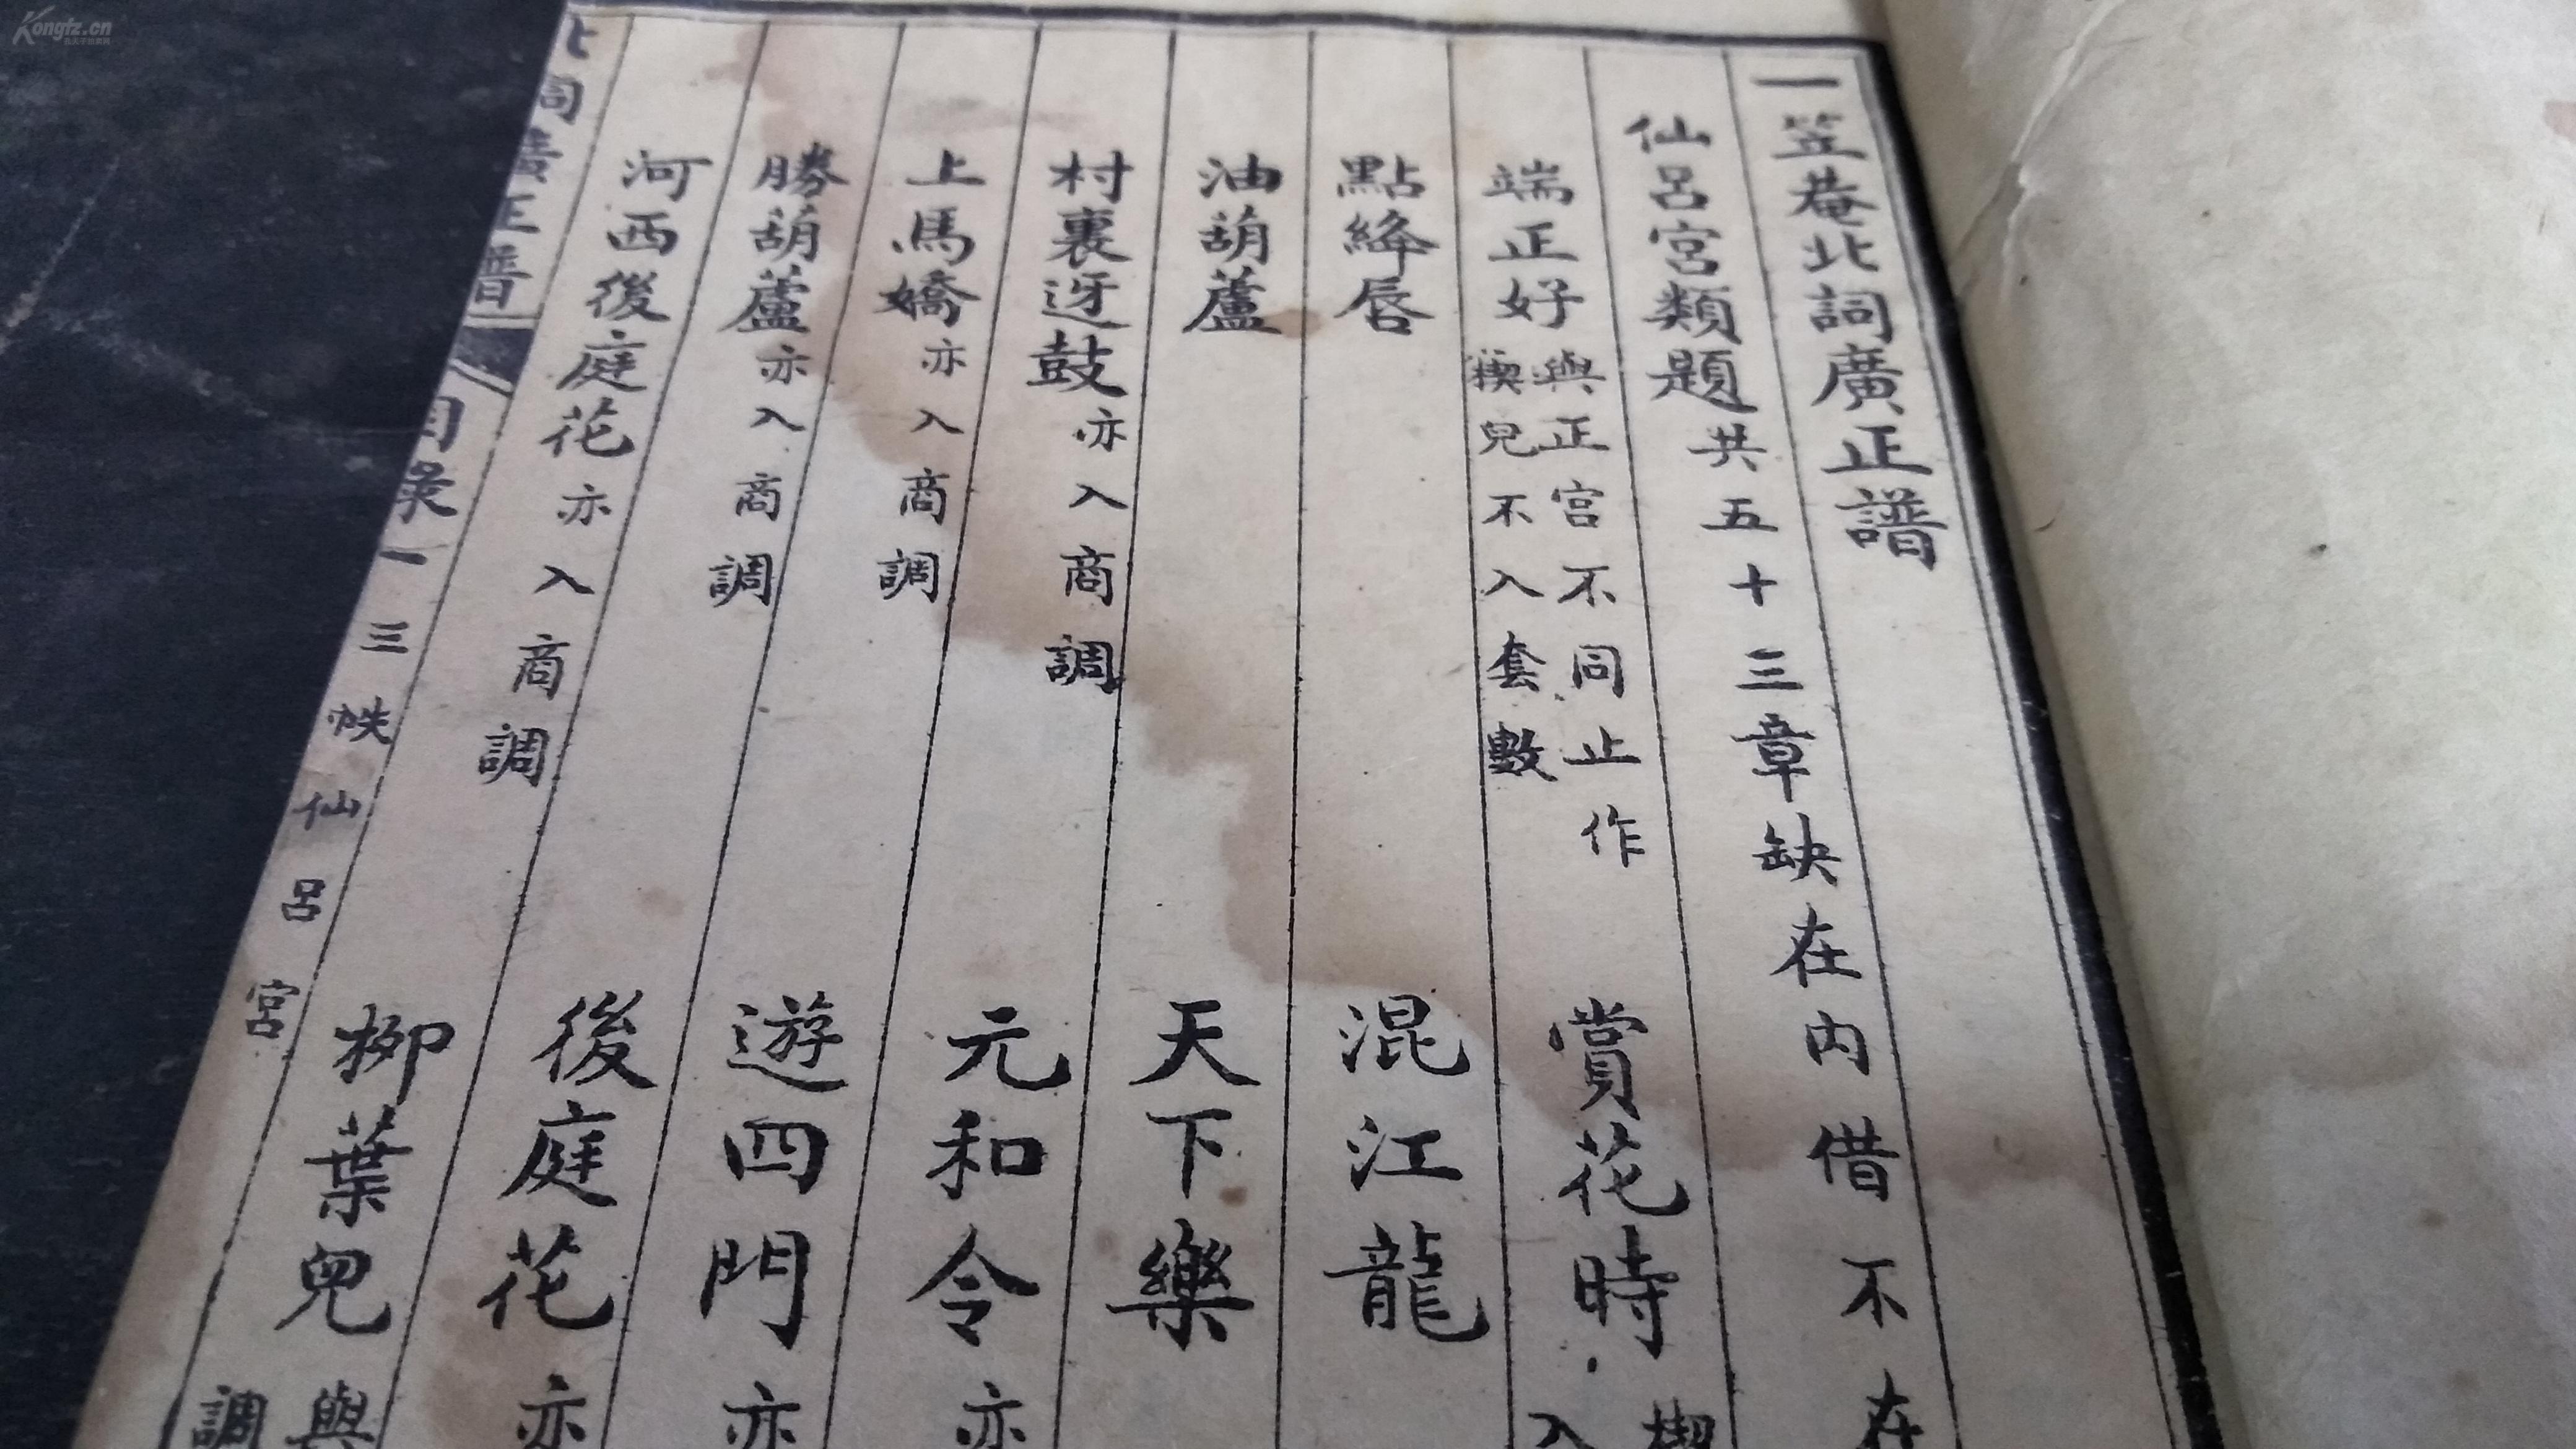 一笠菴北詞廣正譜
仙呂宮類題共五十三章缺在內借不在
端正好與正宮不同止作楔兒不入套數 賞花時楔入
點絳唇 混江龍
油葫蘆 天下樂
村裏迓鼓亦入商調 元和令亦
上馬嬌亦入商調 遊四門亦
勝葫蘆亦入商調 後庭花亦
河西後庭花亦入商調 柳葉兒與調
北詞廣正譜 目录 一 三帙 仙呂宮
Kongfz.cn